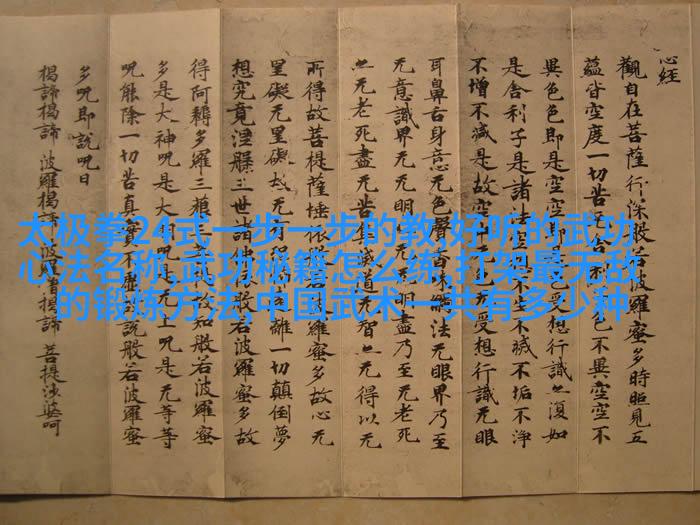 心経
觀自在菩薩行深般若波羅蜜多時照見五
蘊皆空度一切苦厄舍利子色不異空空不
異色色即是空空即是色受想行識亦復如
是舍利子是諸法空相不生不滅不垢不淨
不增不減是故空中无色无受想行識无眼
耳鼻舌身意无色聲香味觸法无眼界乃至
无意識界无无明亦无无明盡乃至无老死
亦无老死盡无苦集滅道无智亦无得以无
所得故菩提薩埵依般若波羅蜜多故心无
罣礙无罣礙故无有恐怖遠離一切顛倒夢
想究竟涅槃三世諸佛依般若波羅蜜多故
得阿耨多羅三藐三菩提故知般若波羅蜜
多是大神呪是大明呪是无上呪是无等等
呪能除一切苦真實不虛故說般若波羅蜜
多呪即說呪曰
揭諦揭諦 波羅揭諦 波羅僧揭諦 菩提娑婆呵
太极拳24式一步一步的教,好听的武功
心法名称,武功秘籍怎么练,打架最无敌
的锻炼方法,中国武术一共有多少种